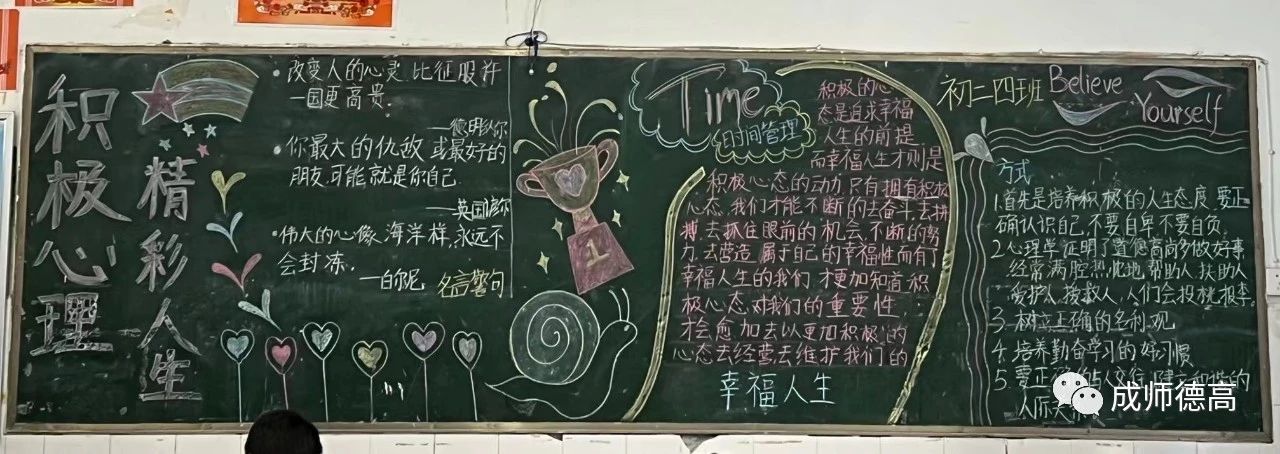 积极心理
精彩人生
改变人的心灵 比征服许
一国更高贵.
你最大的仇敌 或最好的
朋友,可能就是你自己.
—英国谚你
伟大的心像 海洋样,永远不
会封冻.
—白尔尼
名言警句
1
Time
时间管理
积极的心
态是追求幸福
人生的前提
而幸福人生才则是
积极心态的动力.只有,拥有积极
心态.我们才能不断的去奋斗.去拼
搏,去抓住眼前的机会.不断的努
力.去营造.属于自己的幸福性而有了
幸福人生的我们,才更加知道积
极心态.对我们的重要性,
才会愈加去以更加积极的
心态去经营去维护我们的
幸福人生
初二四班 Believe
Yourself
方式
1.首先是培养积极的人生态度.要正
确认识自己,不要自卑不要自负.
2心理学证明了道德高尚多做好事,
经常满腔热忱地,帮助人,扶助人
爱护人,援救人,人们会投桃报李.
3.树立正确的名利观
4.培养勤奋学习的好习惯
5.要正 与人交往 建立和谐的
人际关
成师德高